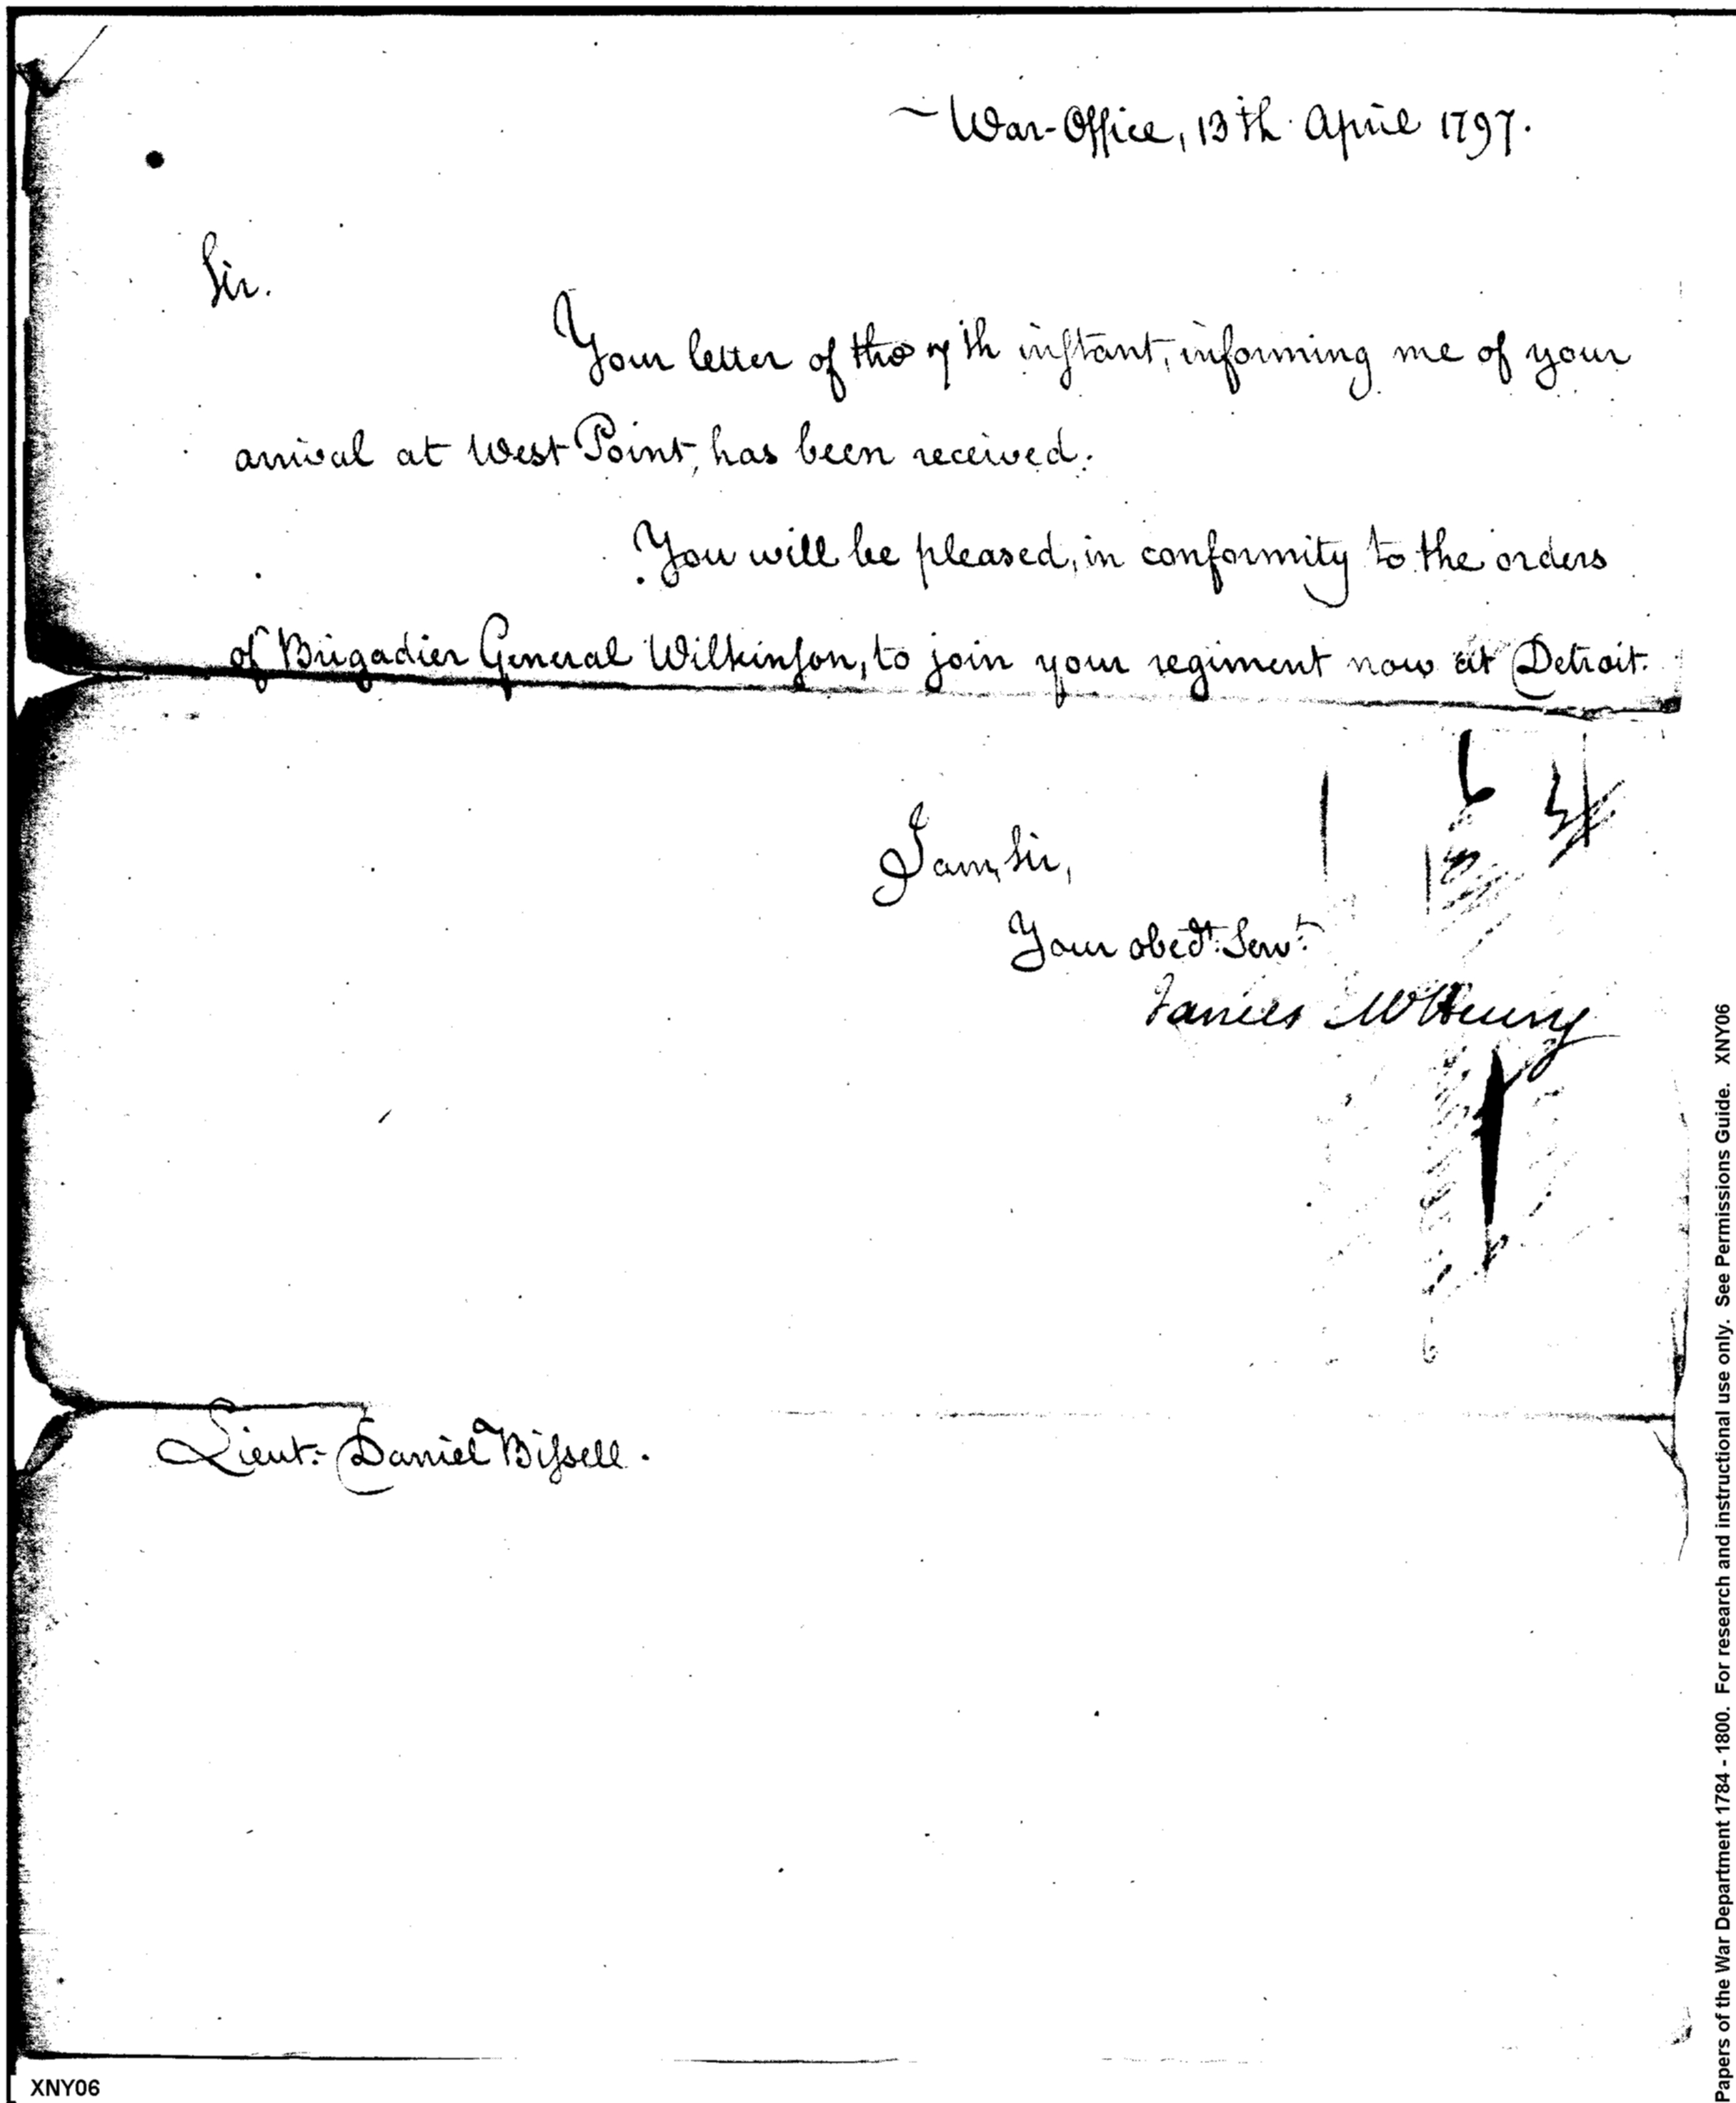 War-Office, 13th April 1797.
Sir.
Your letter of the 7th inſtant, informing me of your
arrival at West Point, has been received.
You will be pleased, in conformity to the orders
of Brigadier General Wilkinſon, to join your regiment now at Detroit.
I am, Sir,
Your obedt. Servt.
James McHenry
Lieut. Daniel Biſsell.
XNY06
Papers of the War Department 1784 - 1800. For research and instructional use only. See Permissions Guide. XNY06